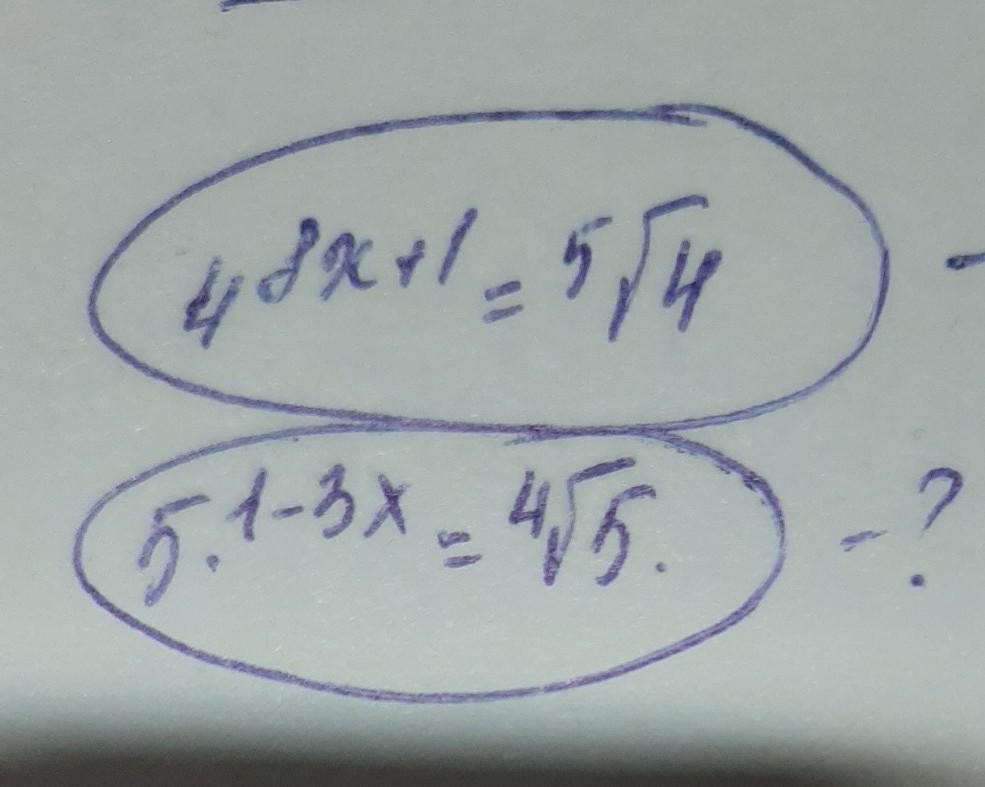 4^{8x+1} = ⁵√4 -
5.^{1-3x} = ⁴√5. - ?